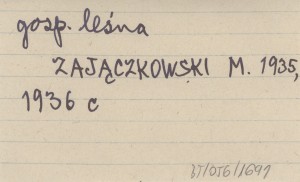 gosp. leśna
ZAJĄCZKOWSKI M. 1935,
1936 c
BT/OTG/1691